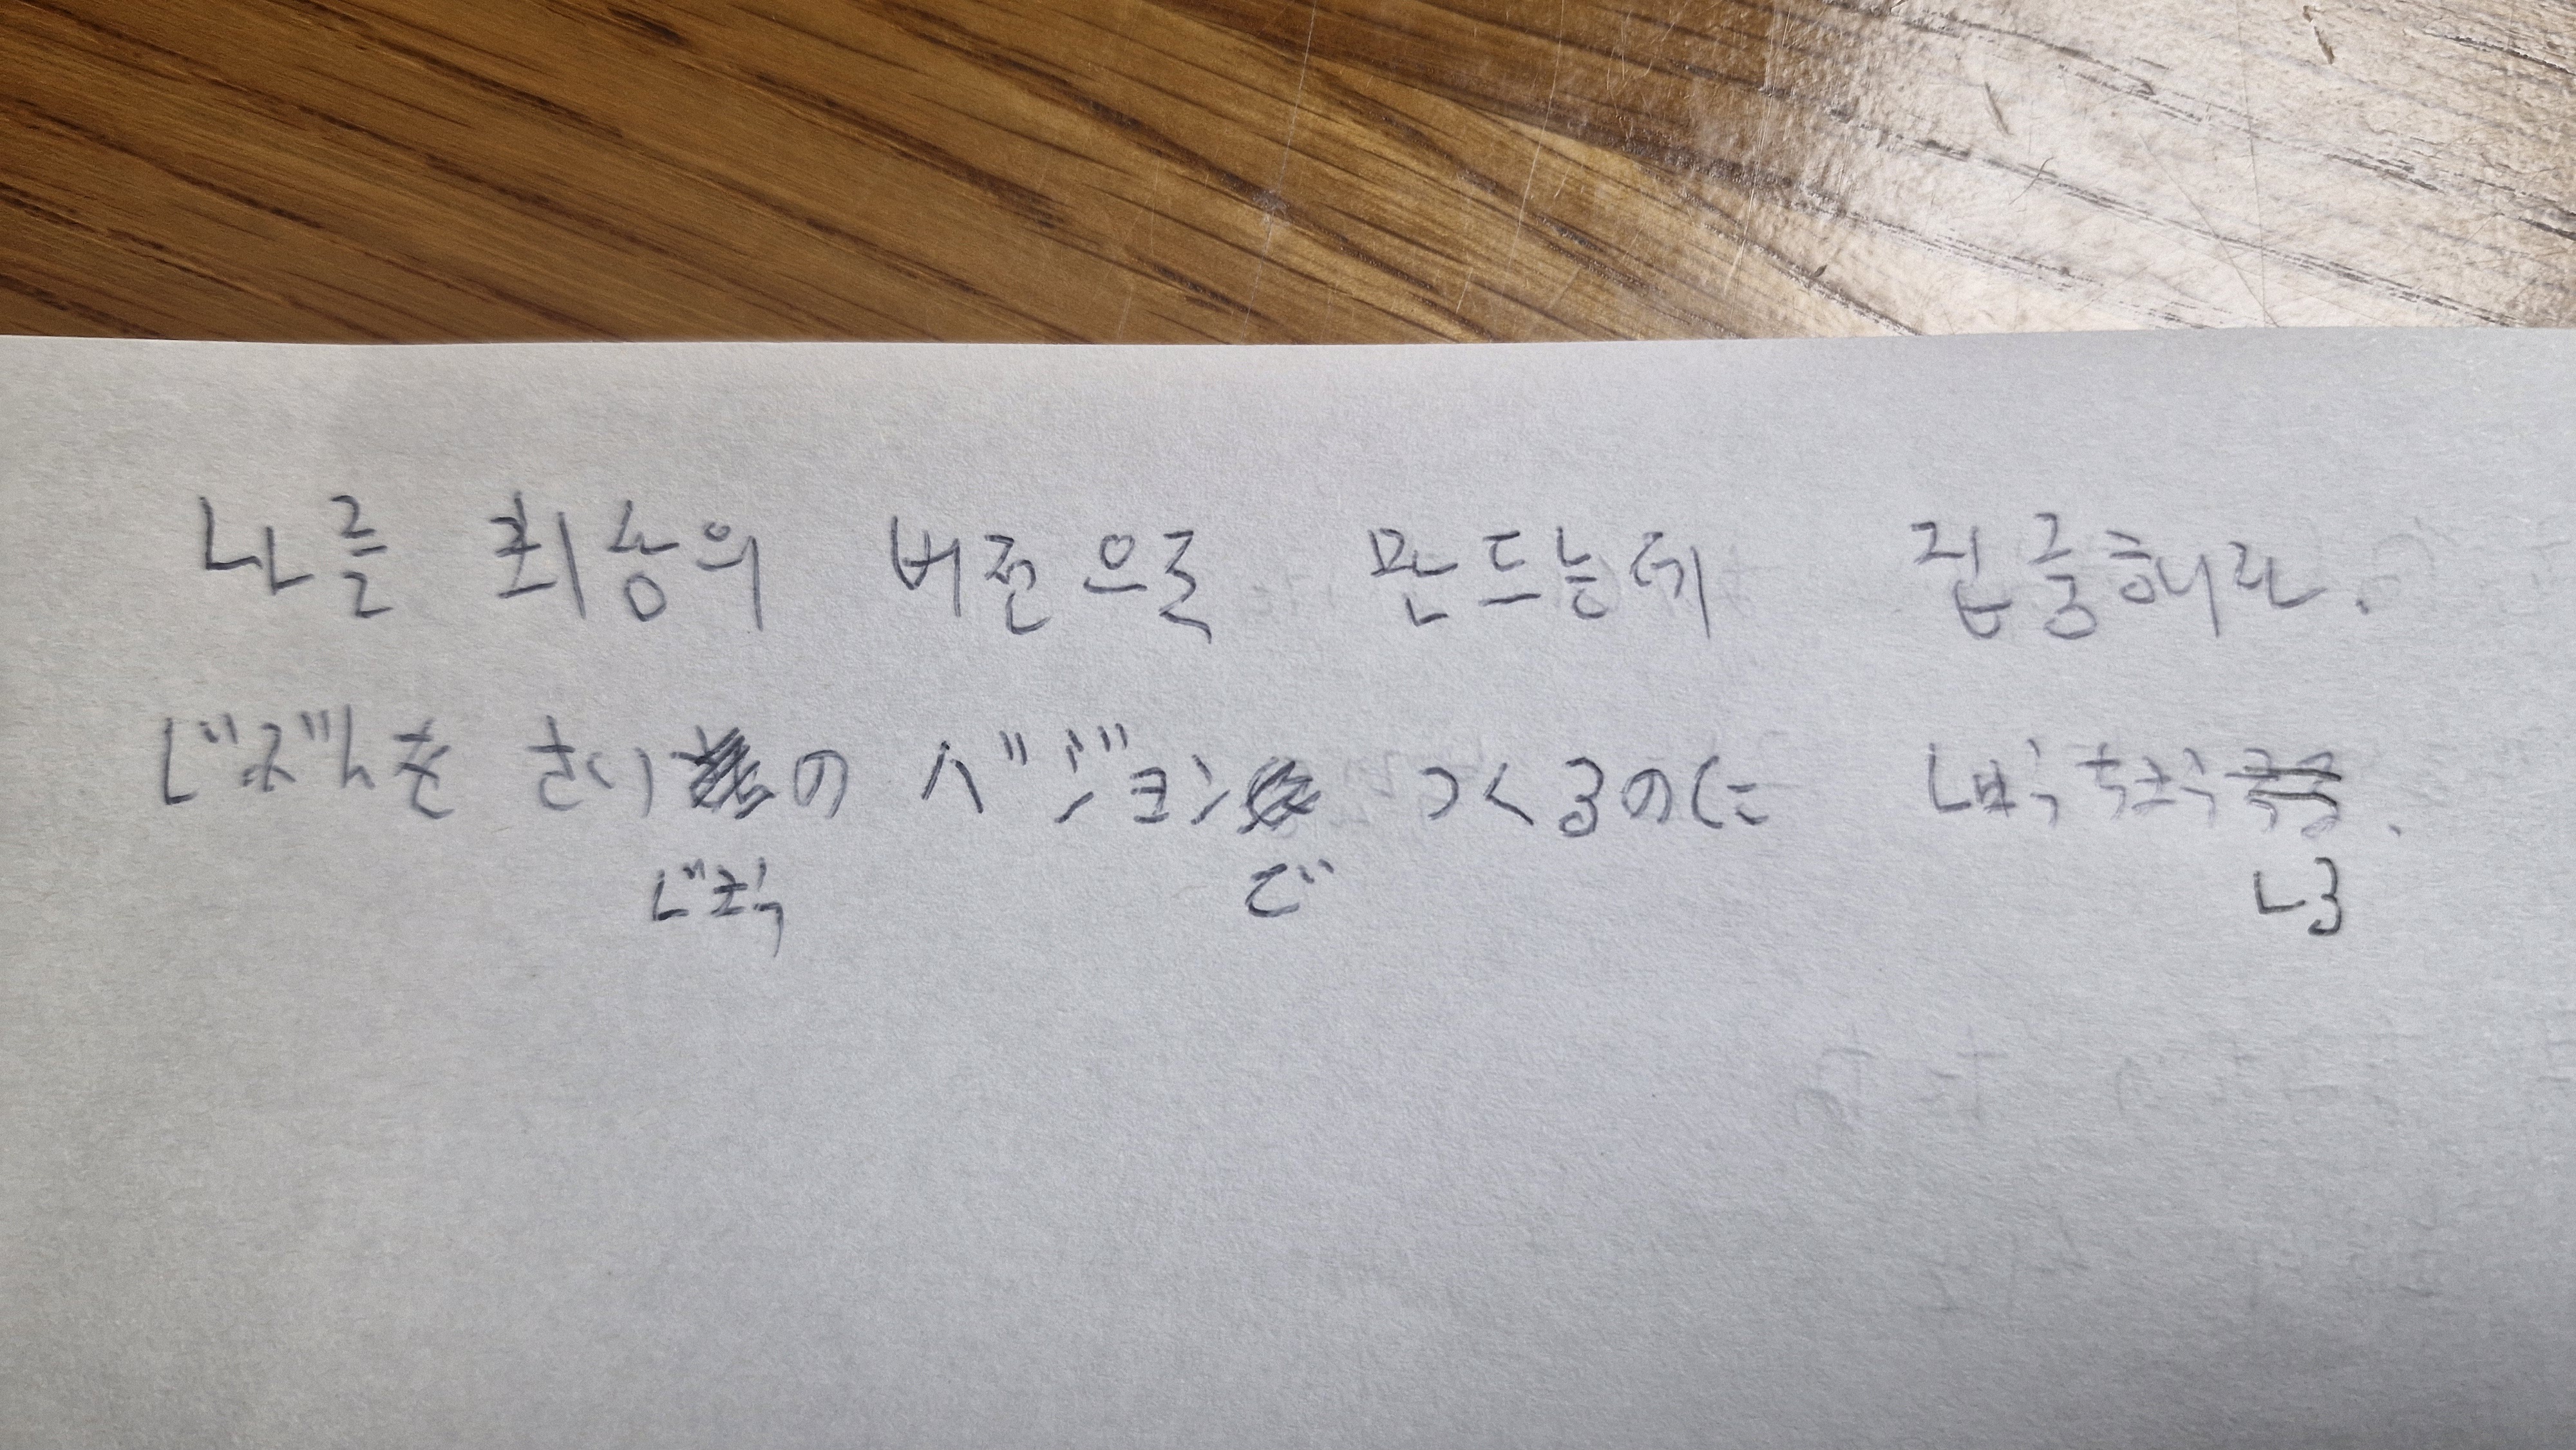 나를 최송의 버전으로 만드는데 집중해라.
じぶんを さい の ベジョン つくるのに しゅちゅう .
じょう で しろ